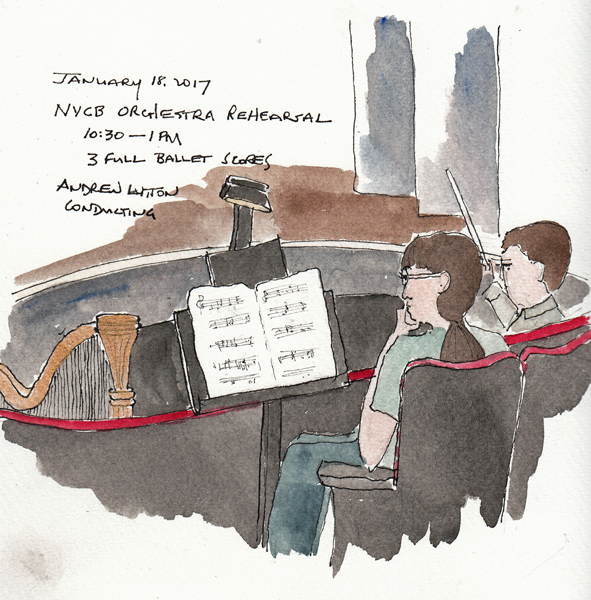 JANUARY 18, 2017
NYCB ORCHESTRA REHEARSAL
10:30 — 1 PM
3 FULL BALLET SCORES
ANDREW LITTON
CONDUCTING